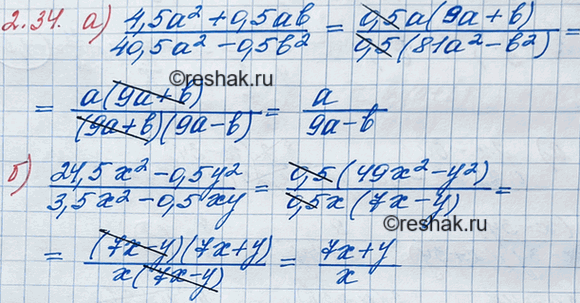 2.34. а) (4,5a² + 0,5ab)/(40,5a² - 0,5b²) = (0,5a(9a + b))/(0,5(81a² - b²)) =
©reshak.ru
= (a(9a + b))/((9a + b)(9a - b)) = a/(9a - b)
б) (24,5x² - 0,5y²)/(3,5x² - 0,5xy) = (0,5(49x² - y²))/(0,5x(7x - y)) =
©reshak.ru
= ((7x - y)(7x + y))/(x(7x - y)) = (7x + y)/x